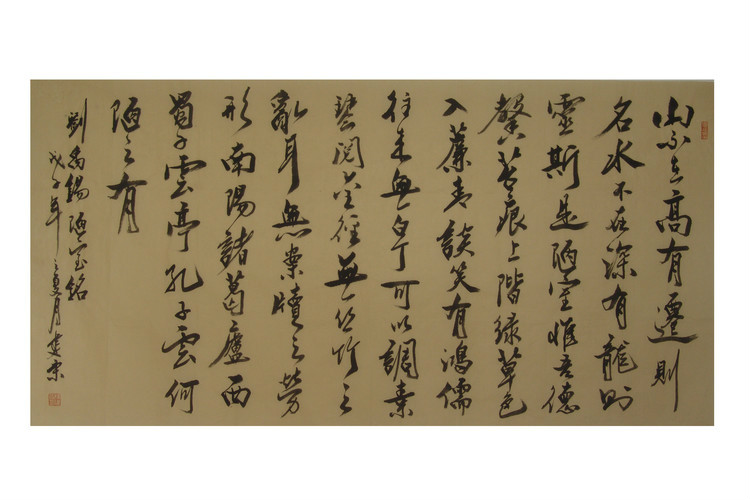 山不在高有遷則
名水不在深有龍則
靈斯是陋室惟吾德
馨苔痕上階緑草色
入簾青談笑有鴻儒
往来無白丁可以調素
琴閲金徑無丝竹之
亂耳無案牘之勞
形南陽諸葛廬西
蜀子雲亭孔子雲何
陋之有
劉禹錫陋室銘
戊子年之夏月